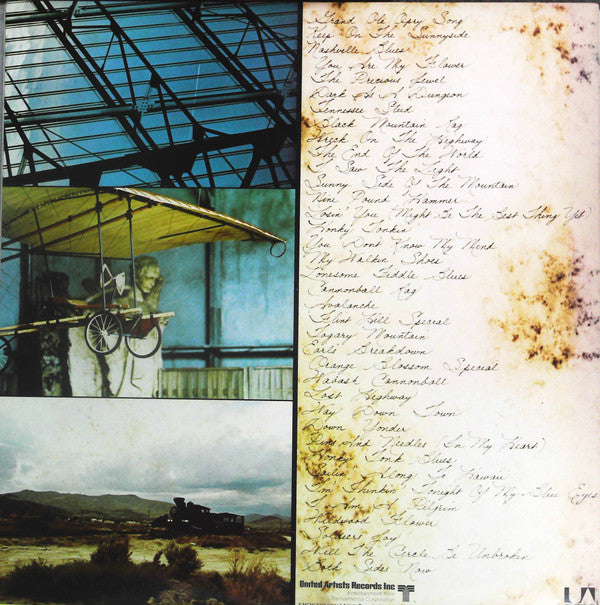 Grand Ole Opry Song
Keep On The Sunnyside
Nashville Blues
You Are My Flower
The Precious Jewel
Dark As A Dungeon
Tennessee Stud
Black Mountain Rag
Wreck On The Highway
The End Of The World
I Saw The Light
Sunny Side Of The Mountain
Nine Pound Hammer
Losin' You (Might Be The Best Thing Yet)
Honky Tonkin'
You Don't Know My Mind
My Walkin' Shoes
Lonesome Fiddle Blues
Cannonball Rag
Avalanche
Flint Hill Special
Togary Mountain
Earl's Breakdown
Orange Blossom Special
Wabash Cannonball
Lost Highway
Way Down Town
Down Yonder
Pins And Needles (In My Heart)
Honky Tonk Blues
Sailin' Along To Hawaii
I'm Thinkin' Tonight Of My Blue Eyes
I Am A Pilgrim
Wildwood Flower
Soldier's Joy
Will The Circle Be Unbroken
Both Sides Now
United Artists Records Inc
Entertainment from
Transamerica Corporation